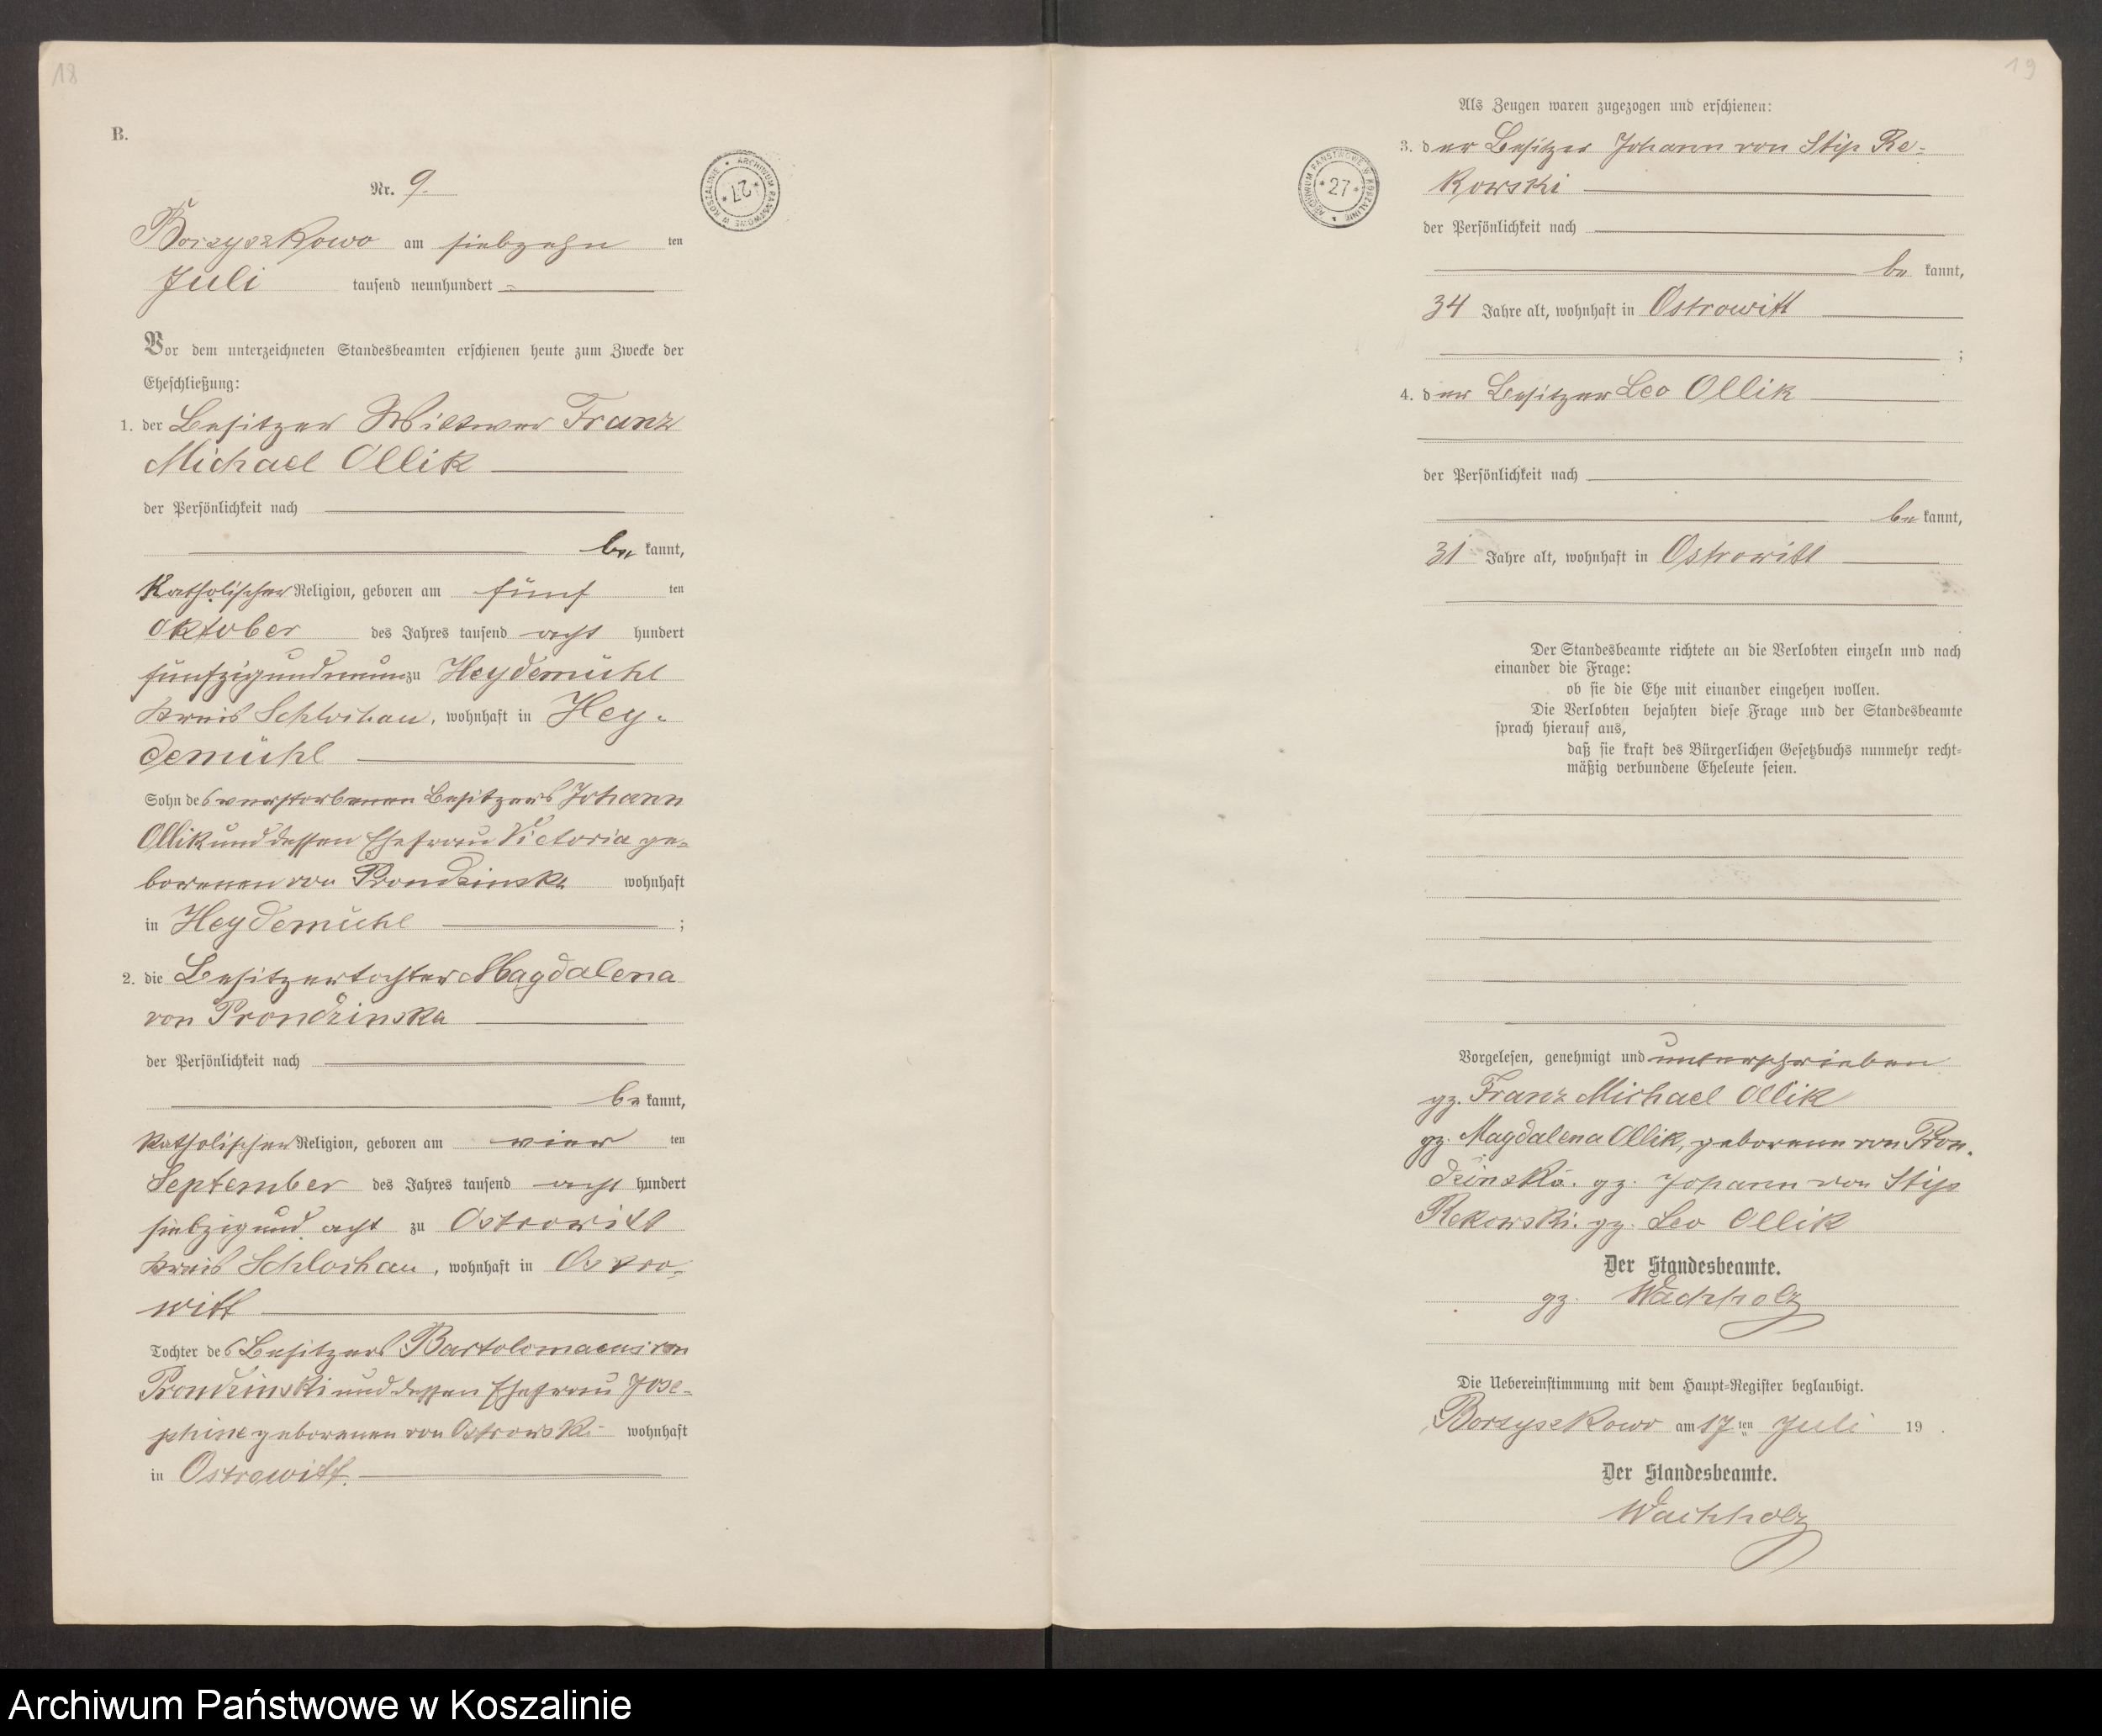 18
B.
Nr. 9.
ARCHIWUM PAŃSTWOWE W KOSZALINIE * 27 *
Borzyszkowo am siebzehn ten
Juli tausend neunhundert
Vor dem unterzeichneten Standesbeamten erschienen heute zum Zwecke der
Eheschließung:
1. der Besitzer Wittwer Franz
Michael Ollik
der Persönlichkeit nach
be kannt,
Katholischer Religion, geboren am fünf ten
Oktober des Jahres tausend acht hundert
fünfzigundneun zu Heydemühl
Kreis Schlochau, wohnhaft in Hey-
demühl
Sohn des verstorbenen Besitzers Johann
Ollik und dessen Ehefrau Victoria ge-
borenen von Prondzinska wohnhaft
in Heydemühl ;
2. die Besitzertochter Magdalena
von Prondzinska
der Persönlichkeit nach
be kannt,
Katholischer Religion, geboren am vier ten
September des Jahres tausend acht hundert
siebzigund acht zu Ostrowitt
Kreis Schlochau, wohnhaft in Ostro-
witt
Tochter des Besitzers Bartolomaeus von
Prondzinski und dessen Ehefrau Jose-
phine geborenen von Ostrowski wohnhaft
in Ostrowitt.
19
Als Zeugen waren zugezogen und erschienen:
ARCHIWUM PAŃSTWOWE W KOSZALINIE * 27 *
3. der Besitzer Johann von Stip Re-
kowski
der Persönlichkeit nach
be kannt,
34 Jahre alt, wohnhaft in Ostrowitt
;
4. der Besitzer Leo Ollik
der Persönlichkeit nach
be kannt,
31 Jahre alt, wohnhaft in Ostrowitt
Der Standesbeamte richtete an die Verlobten einzeln und nach
einander die Frage:
ob sie die Ehe mit einander eingehen wollen.
Die Verlobten bejahten diese Frage und der Standesbeamte
sprach hierauf aus,
daß sie kraft des Bürgerlichen Gesetzbuchs nunmehr recht-
mäßig verbundene Eheleute seien.
Vorgelesen, genehmigt und unterschrieben
gz. Franz Michael Ollik
gz. Magdalena Ollik, geborene von Pron-
dzinska. gz. Johann von Stip
Rekowski. gz. Leo Ollik
Der Standesbeamte.
gz. Wachholz
Die Uebereinstimmung mit dem Haupt-Register beglaubigt.
Borzyszkowo am 17ten Juli 19 .
Der Standesbeamte.
Wachholz
Archiwum Państwowe w Koszalinie